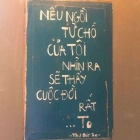 NẾU NGỒI
TỪ CHỖ
CỦA TÔI
NHÌN RA
SẼ THẤY
CUỘC ĐỜI
RẤT
... TO